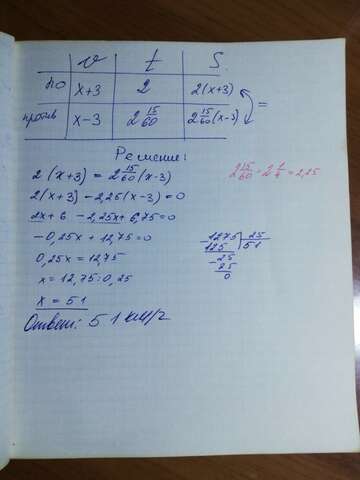 v t S
по x+3 2 2(x+3)
против x-3 2 15/60 2 15/60(x-3) =
Решение:
2(x+3) = 2 15/60(x-3)
2 15/60 = 2 1/4 = 2,25
2(x+3) - 2,25(x-3) = 0
2x+6 - 2,25x + 6,75 = 0
-0,25x + 12,75 = 0
0,25x = 12,75
x = 12,75 : 0,25
x = 51
1275 25
125 51
-25
25
0
Ответ: 51 км/ч